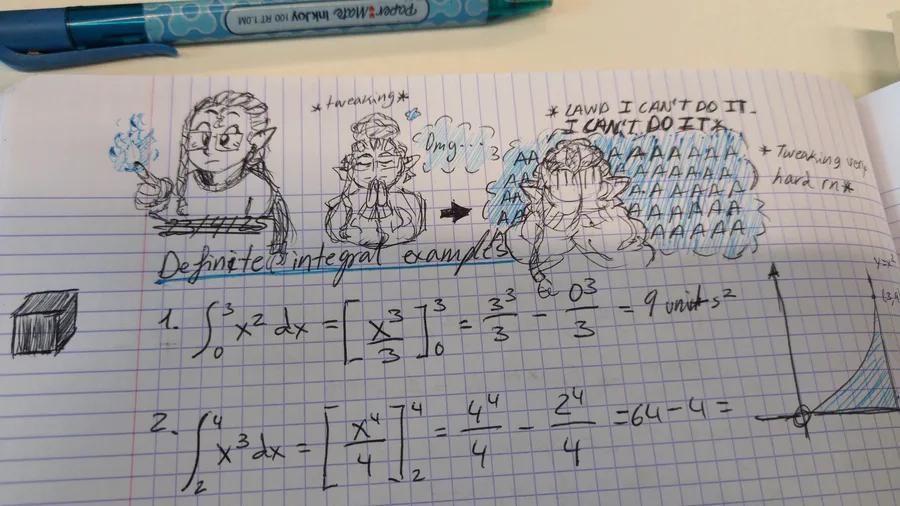 PaperMate InkJoy 100 RT 1.0M
*tweaking*
Omg...
* LAWD I CAN'T DO IT.
I CAN'T DO IT*
AA A A A A A A
A A A A A A
AA A A A A A
AA A A A A A
A A A A A A
* Tweaking very
hard rn*
Definite integral examples
1. ∫₀³ x² dx = [x³/3]₀³ = 3³/3 - 0³/3 = 9 units²
y=x²
2. ∫₂⁴ x³ dx = [x⁴/4]₂⁴ = 4⁴/4 - 2⁴/4 = 64 - 4 =